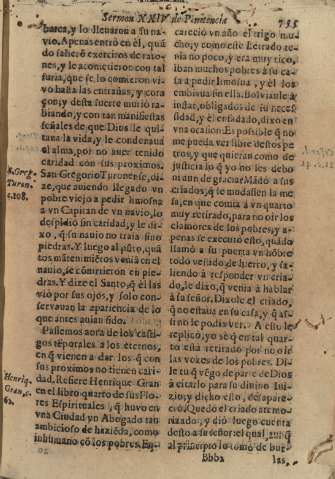 Sermon XXIV de Penitencia
755
barca, y lo llenaron a su na-
vio. Apenas entrò en èl, quã
do saliero exercitos de rato-
nes, y le acometieron con tal
furia, que se lo comieron vi-
vo hasta las entrañas, y cora
çon; y desta suerte muriò ra-
biando, y con tan manifiestas
señales de que Dios le qui-
tava la vida, y le condenava
el alma, por no aver tenido
caridad con sus proximos.
San Gregorio Turonense, di-
ze, que aviendo llegado vn
pobre viejo a pedir limosna
a vn Capitan de vn navio, lo
despidiò sin caridad, y le di-
xo, q̃ su navio no traìa sino
piedras. Y luego al pũto, quã
tos mantenimiẽtos venìa en el
navio, se cõvirtieron en pie-
dras. Y dize el Santo, q̃ èl las
viò por sus ojos, y solo con-
servavan la apariencia de lo
que antes avian sido.
Passemos aora de los casti-
gos tẽporales a los eternos,
en q̃ vienen a dar los q̃ con
sus proximos no tienen cari-
dad. Refiere Henrique Gran
en el libro quarto de sus Flo-
res Espirituales, q̃ huvo en
vna Ciudad vn Abogado tan
ambicioso de hazieda, como
inhumano cõ los pobres. En-
S. Greg.
Turon.
c. 108.
Henriq.
Gran, c.
62.
careciò vn año el trigo mu-
cho; y como este Letrado te-
nia no poco, y era muy rico,
iban muchos pobres a su ca-
sa a pedir limosna, y èl los
embiava sin ella. Bolvianle à
instar, obligados de su neces
sidad, y èl enfadado, dixo en
vna ocasion: Es possible q̃ no
me pueda ver libre destos pe
rros, y que quieran como de
justicia lo q̃ yo no les debo
ni aun de gracia? Mãdò a sus
criados, q̃ le mudassen la me
sa, en que comia à vn quarto
muy retirado, para no oìr los
clamores de los pobres, y a-
penas se executò esto, quãdo
llamò a su puerta vn hõbre
todo vestido de hierro, y sa-
liendo à responder vn cria-
do, le dixo, q̃ venia à hablar
à su señor. Dixole el criado,
q̃ no estava en su casa, y q̃ as-
si no le podia ver. A esto le
replicò, yo sè q̃ en tal quar-
to està retirado por no oìr
las vozes de los pobres. Di-
le tu q̃ vẽgo de parte de Dios
à citarlo para su divino Jui-
zio; y dicho esto, desapare-
ciò. Quedò el criado atemo-
rizado, y diò luego cuenta
desto a su señor: el qual, aunq̃
al principio lo tomò de bur-
Bbb2
las,